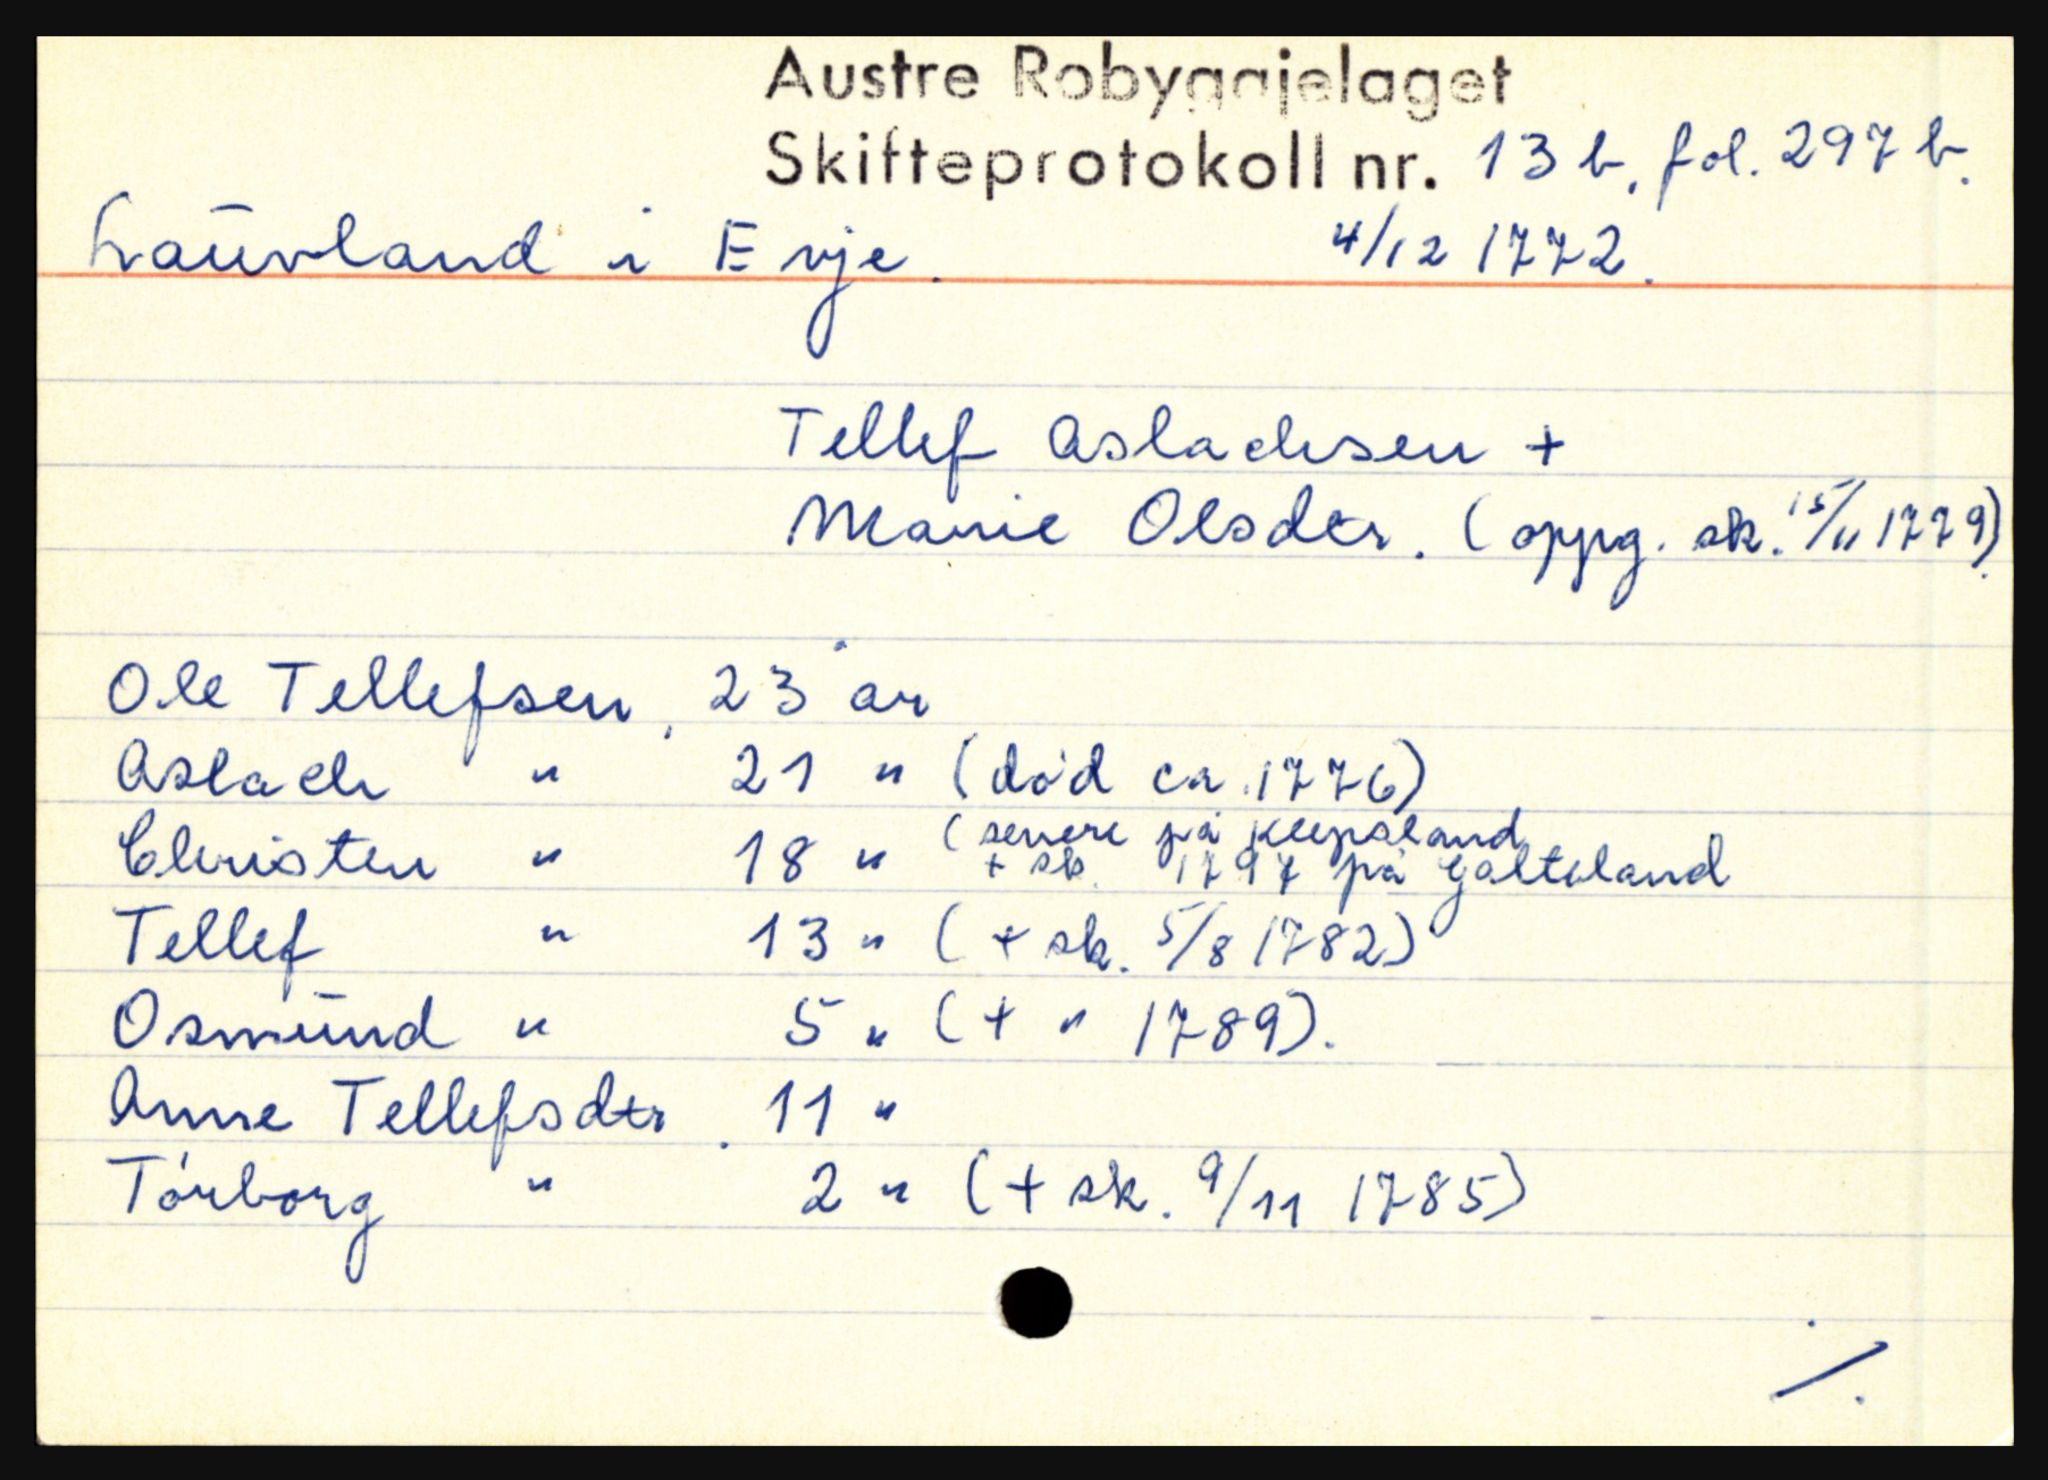 Austre Robyggjelaget
Skifteprotokoll nr. 13 b, fol. 297 b.
Lauvland i Evje. 4/12 1772.
Tellef Aslachsen +
Marie Olsdtr. (oppg. sk. 15/11 1779).
Ole Tellefsen, 23 år
Aslach " 21 " (død ca. 1776)
Christen " 18 " (senere på Keepsland
+ sk. 1797 på Galteland
Tellef " 13 " (+ sk. 5/8 1782)
Osmund " 5 " (+ " 1789).
Anne Tellefsdtr. 11 "
Tórborg " 2 " (+ sk. 9/11 1785)
./.